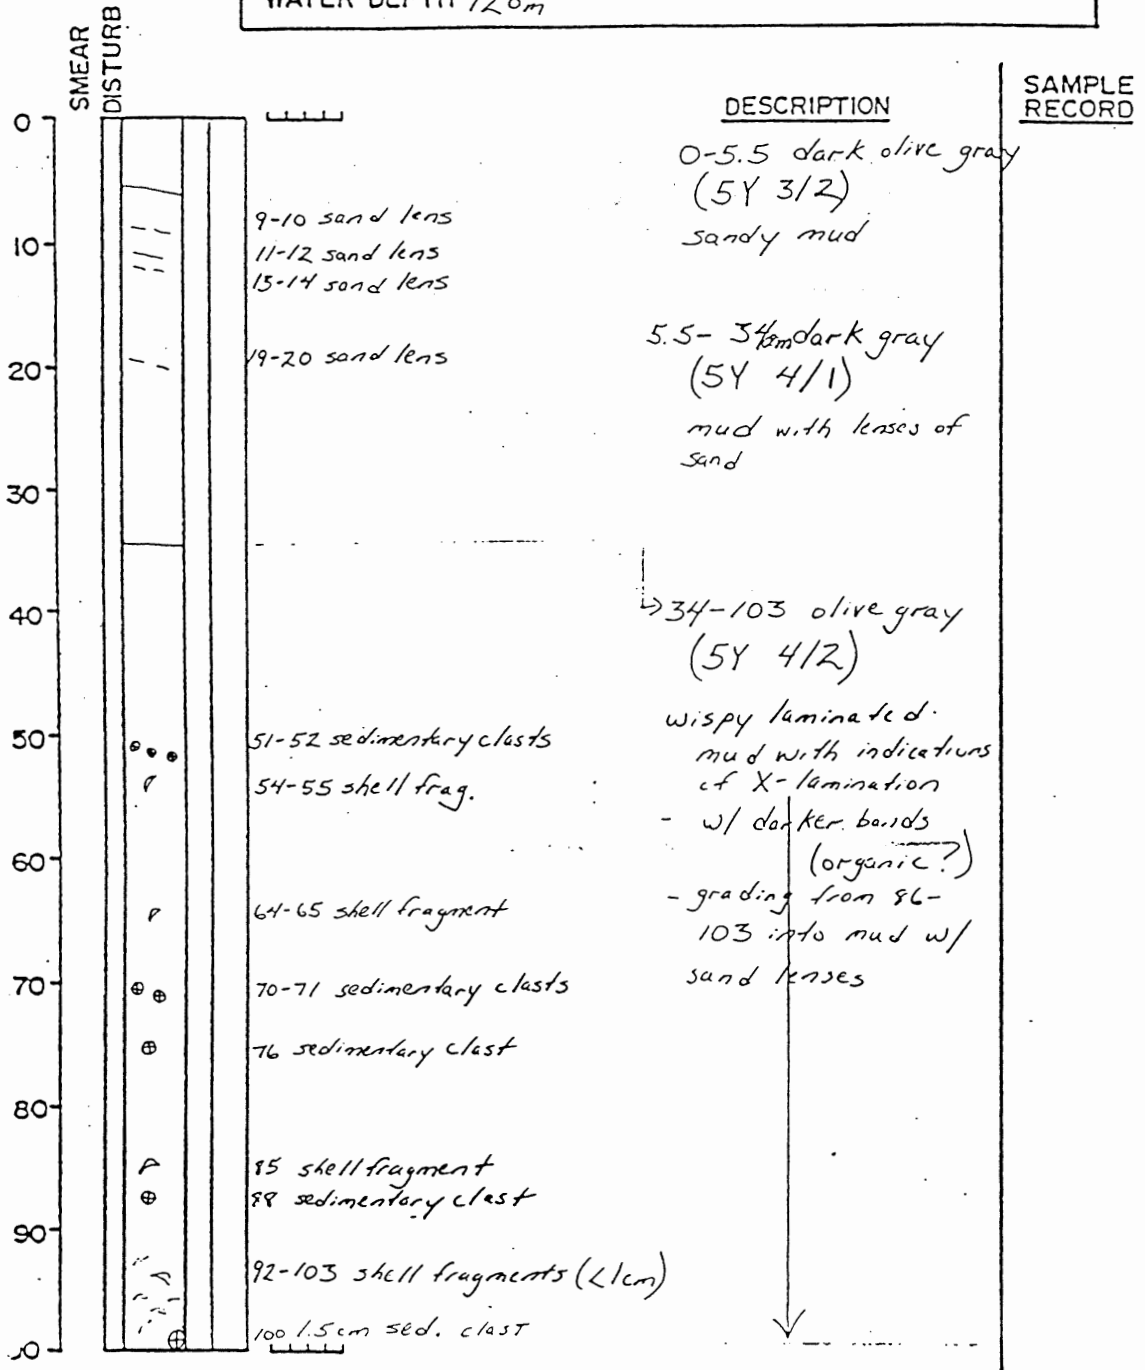 WATER DEPTH 120m
SMEAR
DISTURB
DESCRIPTION
SAMPLE
RECORD
0
10
20
30
40
50
60
70
80
90
9-10 sand lens
11-12 sand lens
13-14 sand lens
19-20 sand lens
51-52 sedimentary clasts
54-55 shell frag.
64-65 shell fragment
70-71 sedimentary clasts
76 sedimentary clast
85 shell fragment
88 sedimentary clast
92-103 shell fragments (<1cm)
100 1.5cm sed. clast
0-5.5 dark olive gray
(5Y 3/2)
sandy mud
5.5-34cm dark gray
(5Y 4/1)
mud with lenses of
sand
34-103 olive gray
(5Y 4/2)
wispy laminated
mud with indications
of X-lamination
- w/ darker bands
(organic?)
- grading from 86-
103 into mud w/
sand lenses